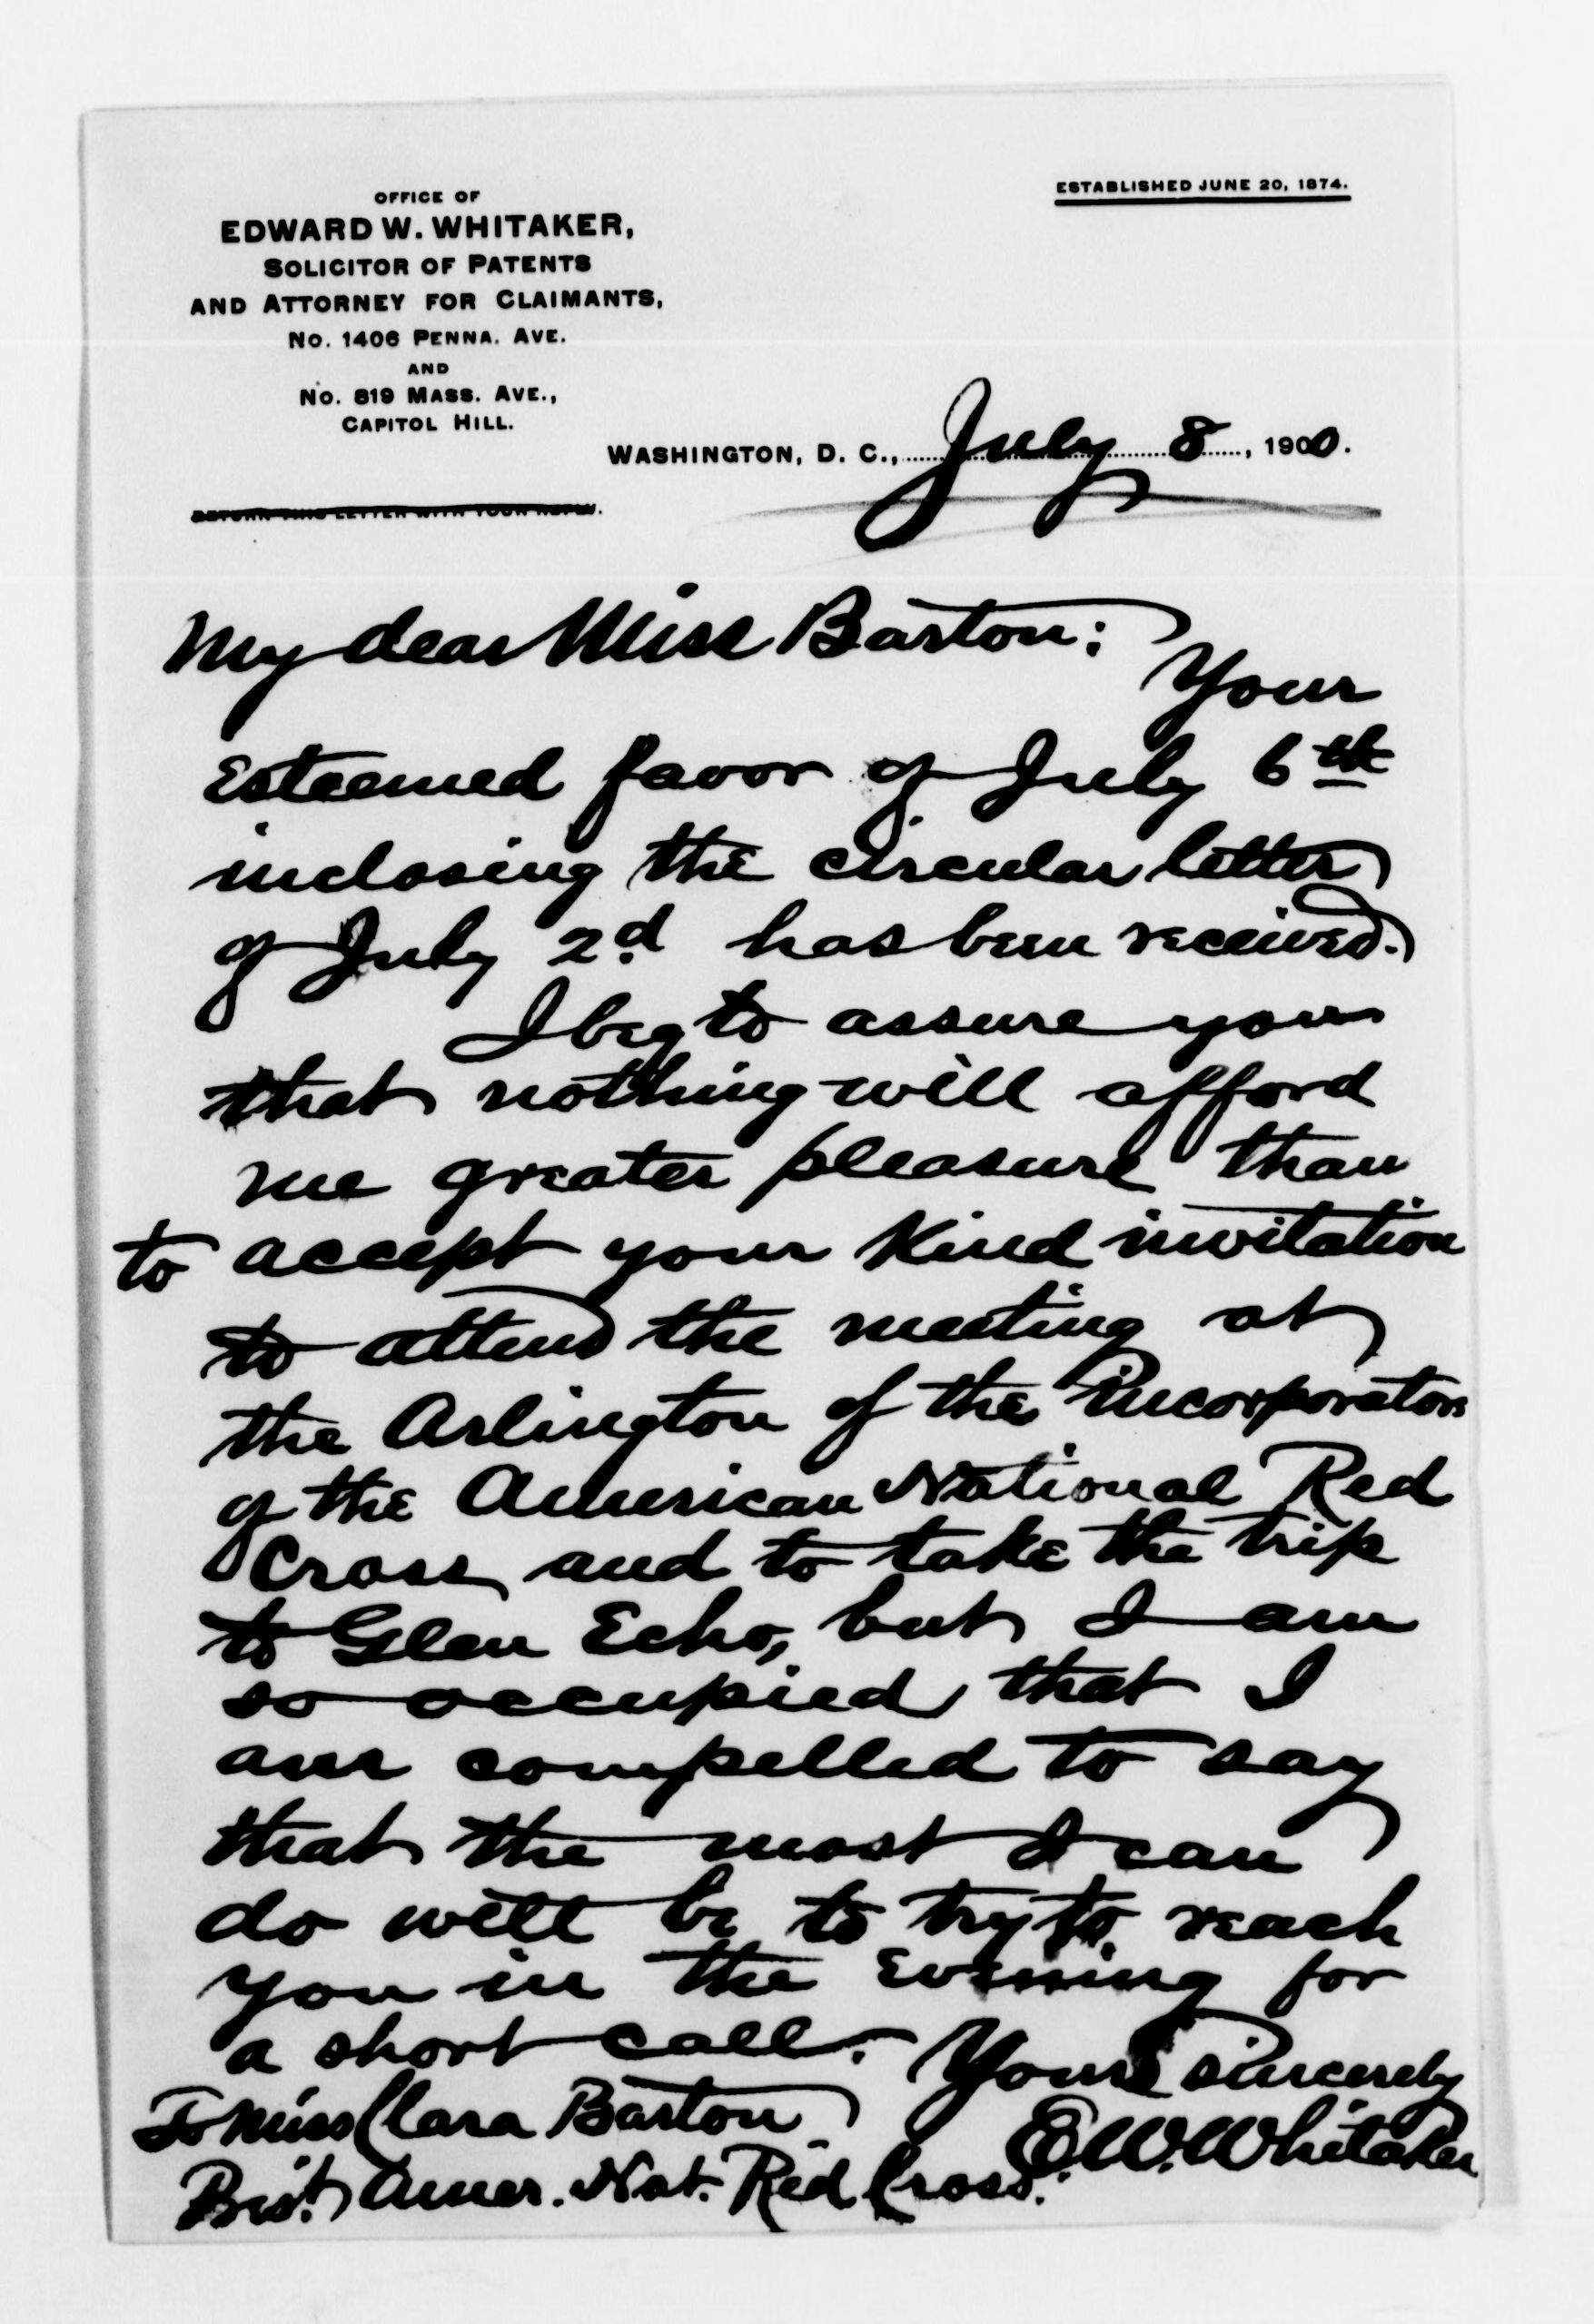 ESTABLISHED JUNE 20, 1874.
OFFICE OF
EDWARD W. WHITAKER,
SOLICITOR OF PATENTS
AND ATTORNEY FOR CLAIMANTS,
No. 1406 PENNA. AVE.
AND
No. 819 MASS. AVE.,
CAPITOL HILL.
WASHINGTON, D. C., July 8, 1900.
RETURN THIS LETTER WITH YOUR REPLY.
My dear Miss Barton:
Your
esteemed favor of July 6th
inclosing the circular letter
of July 2d has been received.
I beg to assure you
that nothing will afford
me greater pleasure than
to accept your kind invitation
to attend the meeting at
the Arlington of the incorporators
of the American National Red
Cross and to take the trip
to Glen Echo, but I am
so occupied that I
am compelled to say
that the most I can
do will be to try to reach
you in the evening for
a short call. Yours sincerely
E. W. Whitaker
To Miss Clara Barton
Prest. Amer. Nat. Red Cross.